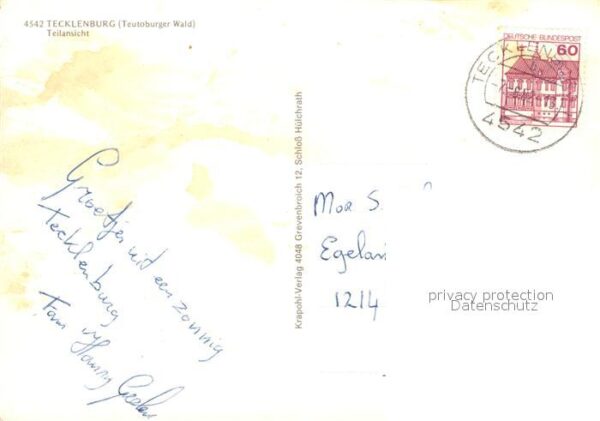 4542 TECKLENBURG (Teutoburger Wald)
Teilansicht
DEUTSCHE BUNDESPOST
60
TECKLENB
4542
Krapohl-Verlag 4048 Grevenbroich 12, Schloß Hülchrath
Groetjes uit een zonnig
Tecklenburg
Fam
Mor S.
Egelan
1214
privacy protection
Datenschutz